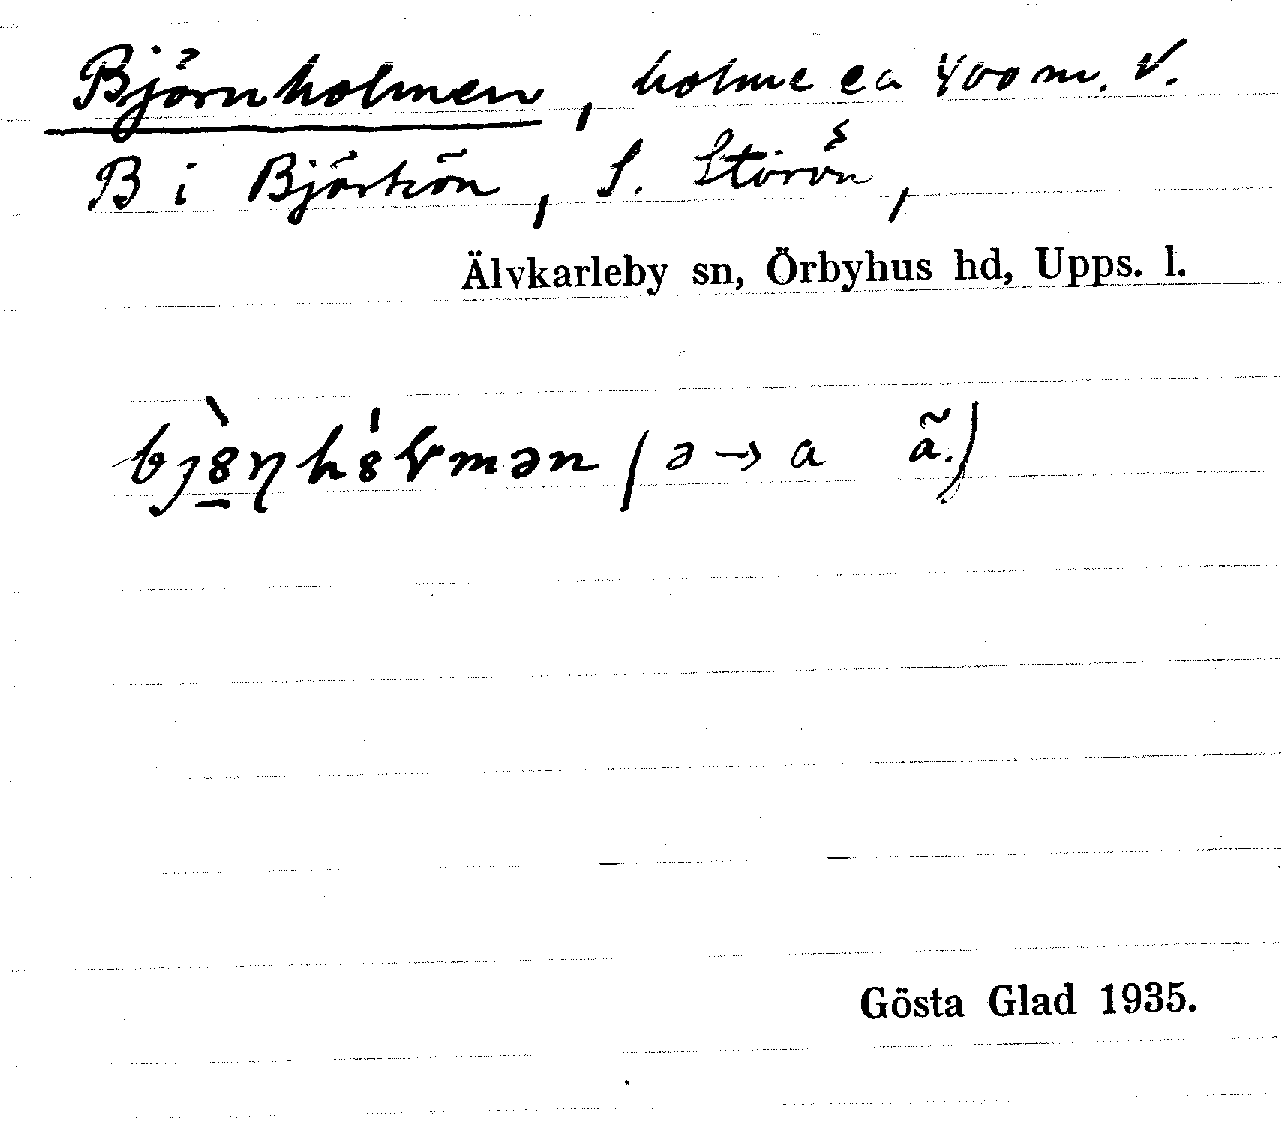 Björnholmen, holme ca 400 m. V.
B i Björkön, S. Storön,
Älvkarleby sn, Örbyhus hd, Upps. l.
(ə → a ã.)
Gösta Glad 1935.